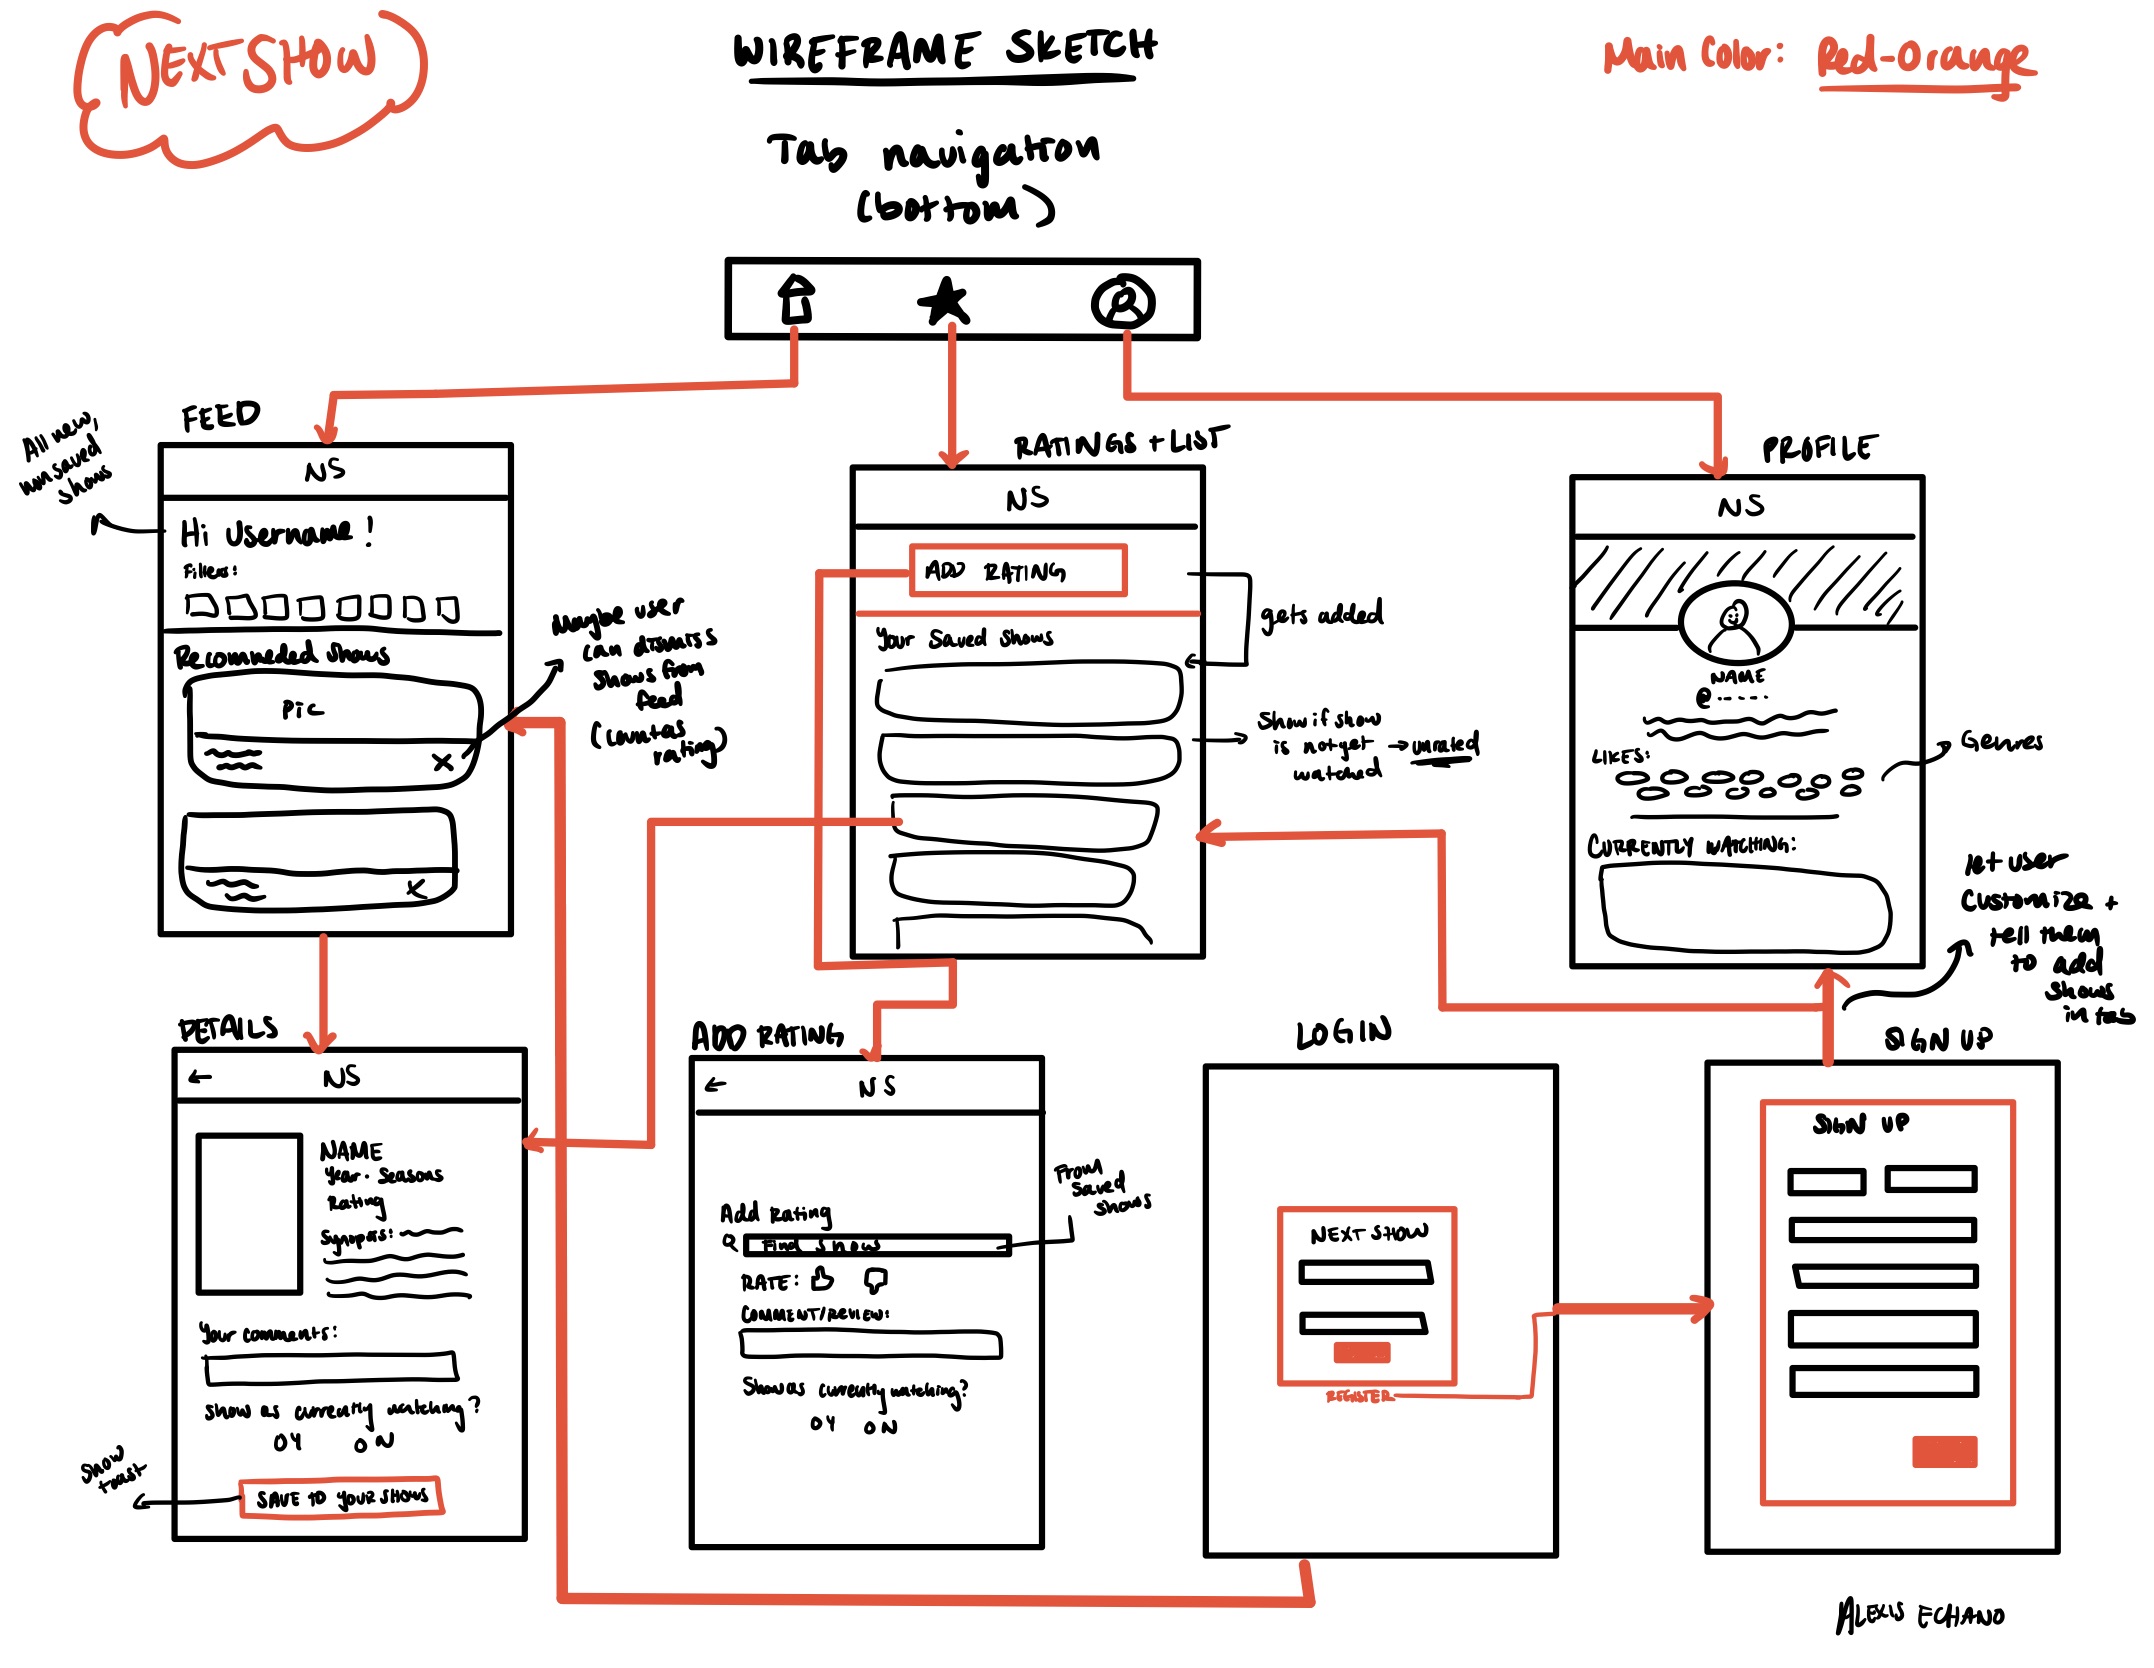 NEXT SHOW
WIREFRAME SKETCH
Main Color: Red-Orange
Tab navigation
(bottom)
FEED
All new,
unsaved
shows
NS
Hi Username!
Filters:
Recommeded shows
Pic
Maybe user
can dismiss
shows from
feed
(counts as
rating)
RATINGS + LIST
NS
ADD RATING
Your Saved shows
gets added
Show if show
is not yet → unrated
watched
PROFILE
NS
NAME
@-----
LIKES:
Genres
CURRENTLY WATCHING:
let user
customize +
tell them
to add
shows
in tab
DETAILS
← NS
NAME
Year · Seasons
Rating
Synopsis:
Your comments:
Show as currently watching?
O Y O N
SAVE TO YOUR SHOWS
Show
toast
ADD RATING
← NS
Add Rating
Find Show
From
saved
shows
RATE:
COMMENT/REVIEW:
Show as currently watching?
O Y O N
LOGIN
NEXT SHOW
REGISTER
SIGN UP
SIGN UP
ALEXIS ECHANO